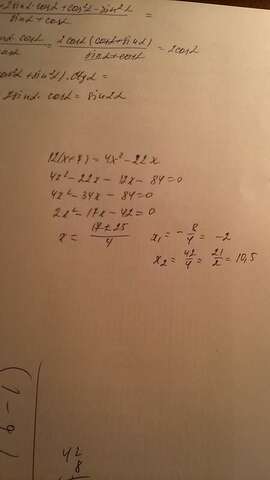 2sinα·cosα + cos²α − sin²α =
sinα + cosα
= 2cosα(cosα + sinα) = 2cosα
sinα + cosα
2sinα·cosα = sin2α
12(x+7) = 4x² − 22x
4x² − 22x − 12x − 84 = 0
4x² − 34x − 84 = 0
2x² − 17x − 42 = 0
x = (17 ± 25)/4 x₁ = −8/4 = −2
x₂ = 42/4 = 21/2 = 10,5
42
8